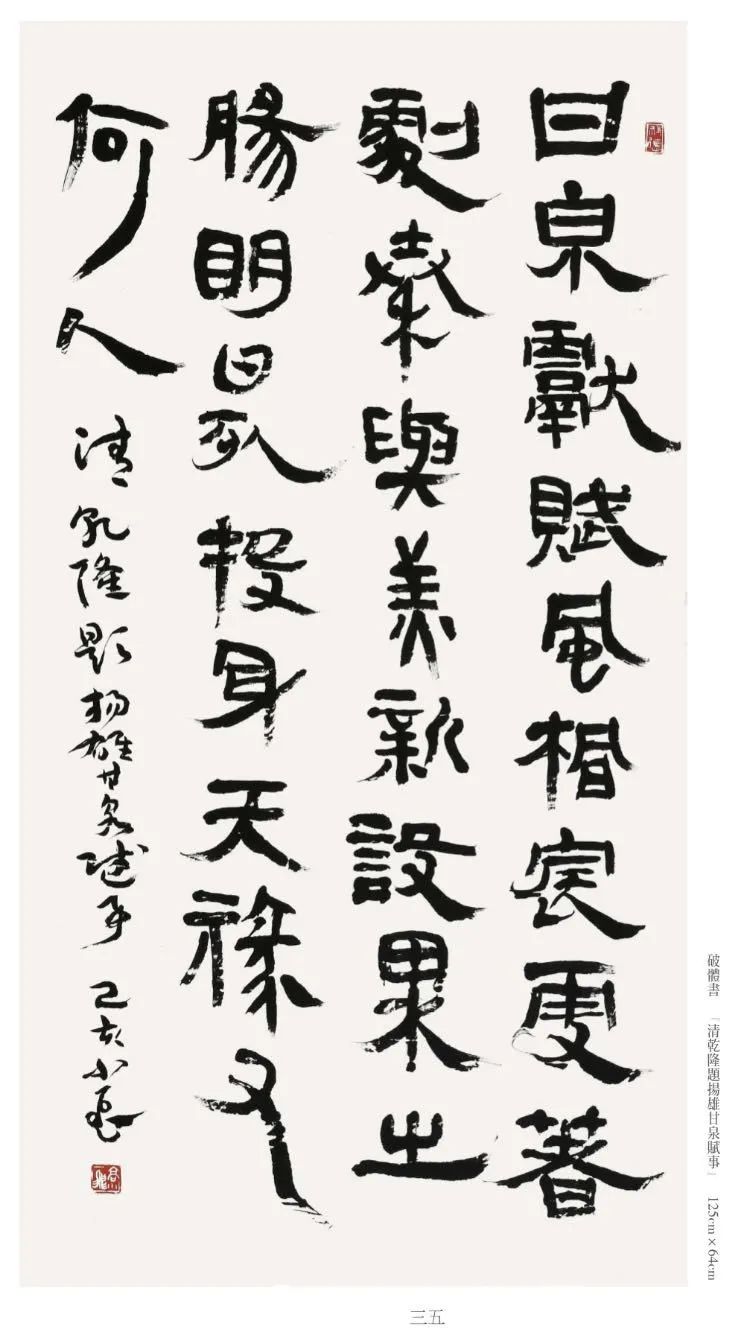 甘泉獻賦風相宸更著
劇秦與美新設果出
腸明日死投身天祿又
何人
清乾隆題揚雄甘泉賦事 己亥小
破體書 「清乾隆題揚雄甘泉賦事」 125cm×64cm
三五